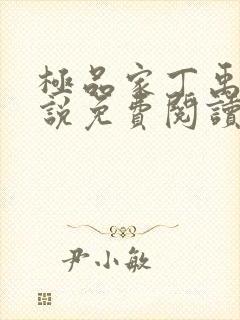 極品家丁禹
說免費閱讀
尹小敏